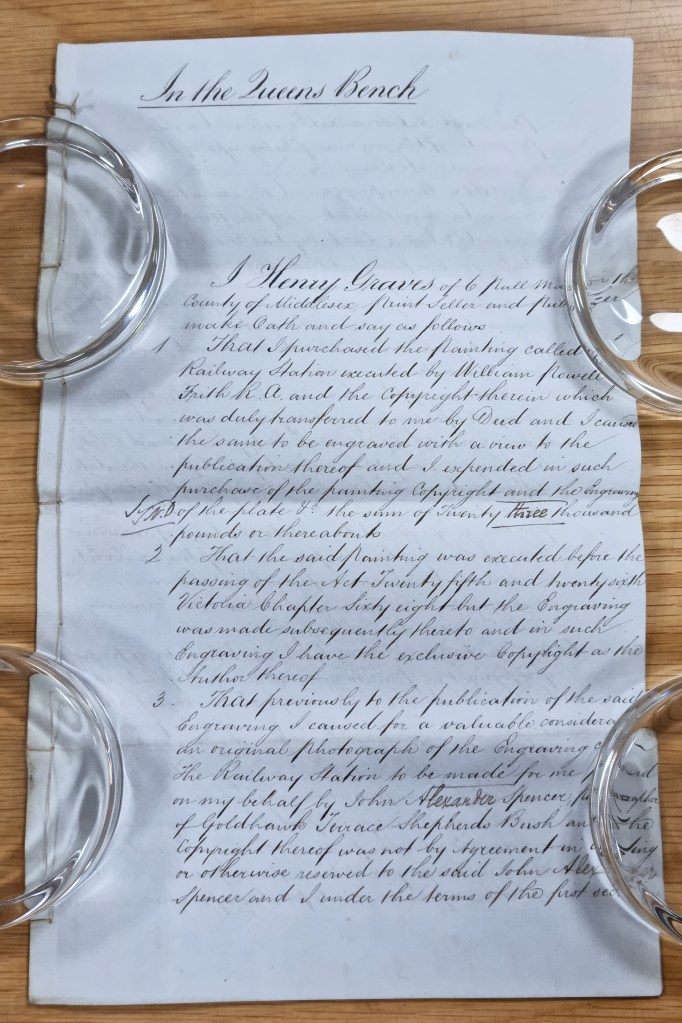 In the Queens Bench
I Henry Graves of 6 Pall Ma or the
County of Middlesex Print Seller and Pub er
make Oath and say as follows
1 That I purchased the Painting called
Railway Station executed by William Powell
Frith R. A. and the Copyright therein which
was duly transferred to me by Deed and I caused
the same to be engraved with a view to the
publication thereof and I expended in such
purchase of the painting Copyright and the Engraving
of the plate &c. the sum of Twenty three thousand
pounds or thereabouts
2 That the said Painting was executed before the
passing of the Act Twenty fifth and twenty sixth
Victoria Chapter Sixty eight but the Engraving
was made subsequently thereto and in such
Engraving I have the exclusive Copyright as the
Author thereof
3. That previously to the publication of the said
Engraving I caused for a valuable considera
an original photograph of the Engraving
The Railway Station to be made for me and
on my behalf by John Alexander Spencer
of Goldhawk Terrace Shepherds Bush an the
Copyright thereof was not by Agreement in
or otherwise reserved to the said John Alex
Spencer and I under the terms of the first sec